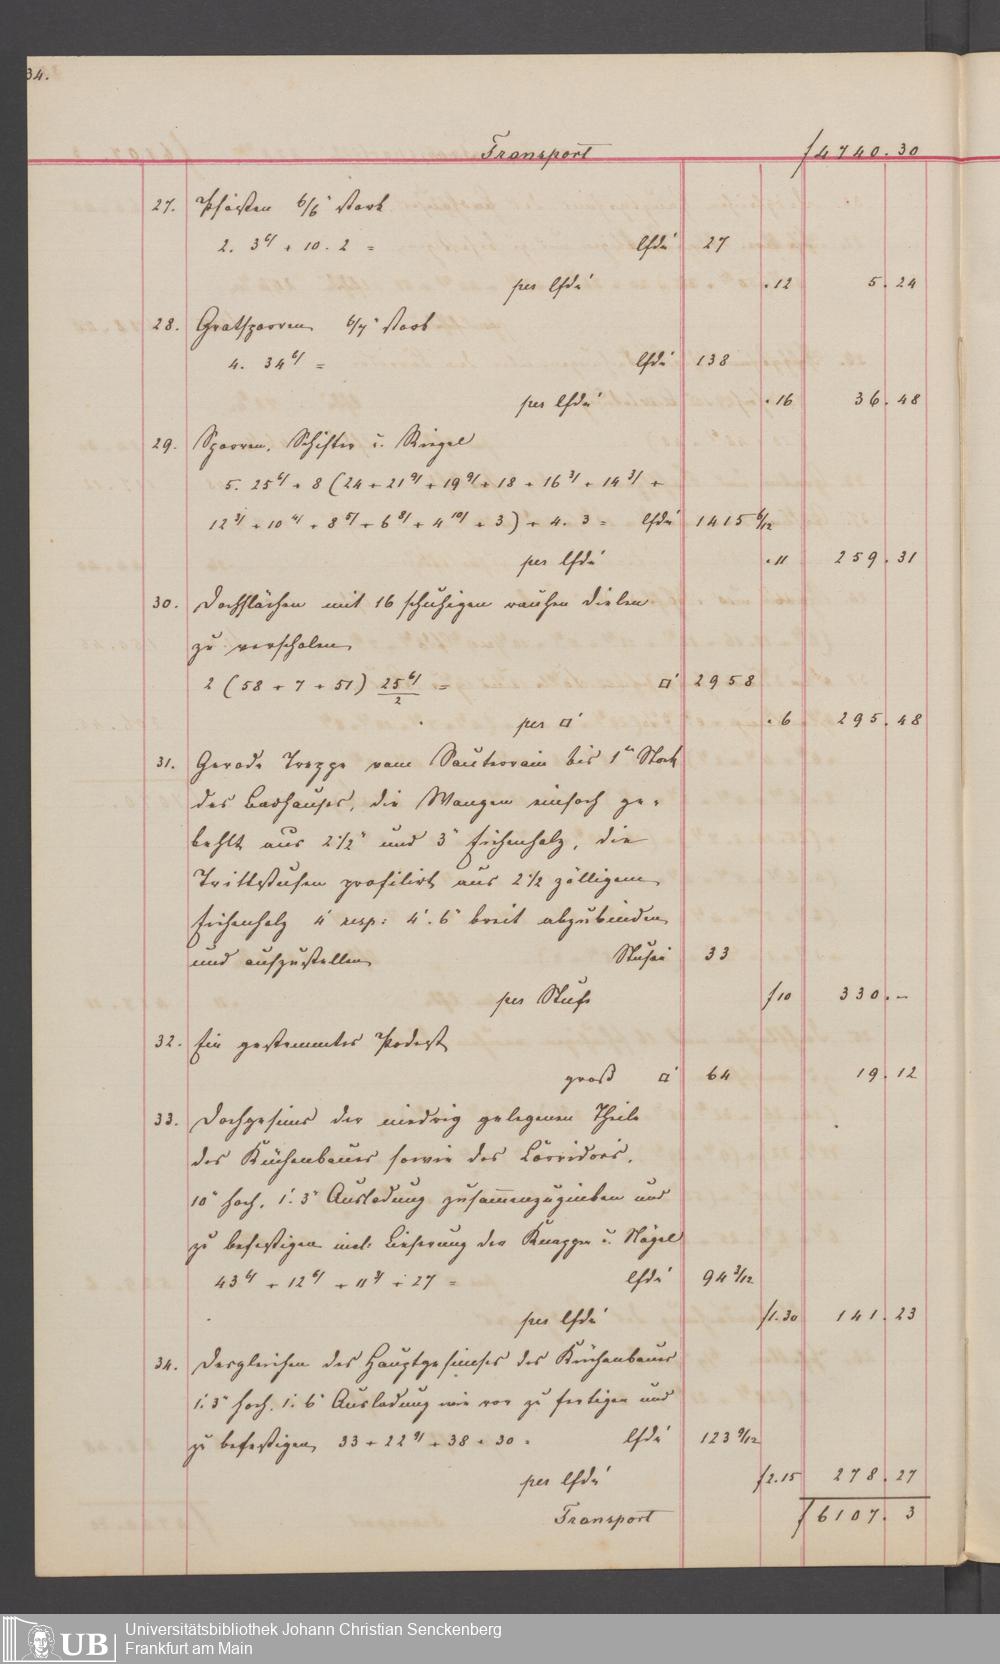 34.
Transport f 4740. 30
27. Pfosten 6/6" stark
2. 3 6/ + 10. 2 = lfd' 27
per lfd' . 12 5. 24
28. Gratsparren 6/7" stark
4. 34 6/ = lfd' 138
per lfd' . 16 36. 48
29. Sparren, Schifter u. Riegel
5. 25 6/ + 8 (24 + 21 9/ + 19 9/ + 18 + 16 3/ + 14 3/ +
12 3/ + 10 4/ + 8 5/ + 6 8/ + 4 10/ + 3) + 4. 3 = lfd' 1415 6/12
per lfd' . 11 259. 31
30. Dachflächen mit 16 schuhigen rauhen Dielen
zu verschalen
2 (58 + 7 + 51) 25 6/ / 2 = □' 2958
per □' . 6 295. 48
31. Gerade Treppe vom Souterrain bis 1ten Stock
des Badhauses, die Wangen einfach ge-
kehlt aus 2 1/2" und 3" Eichenholz, die
Trittstufen profilirt aus 2 1/2 zölligem
Eichenholz 4' resp: 4'. 6" breit abzubinden
und aufzustellen Stufen 33
per Stufe f 10 330. –
32. Ein gestemmtes Podest
groß □' 64 19. 12
33. Dachgesims der niedrig gelegenen Theile
des Küchenbaues sowie des Corridors,
10" hoch, 1'. 3" Ausladung zusammenzu und
zu befestigen incl. Lieferung der Knaggen u. Nägel
43 6/ + 12 6/ + 11 3/ + 27 = lfd' 94 3/12
per lfd' f 1. 30 141. 23
34. Desgleichen des Hauptgesimses des Küchenbaues
1'. 3" hoch, 1'. 6" Ausladung wie vor zu fertigen und
zu befestigen 33 + 22 9/ + 38 + 30 = lfd' 123 9/12
per lfd' f 2. 15 278. 27
Transport f 6107. 3
UB Universitätsbibliothek Johann Christian Senckenberg
Frankfurt am Main